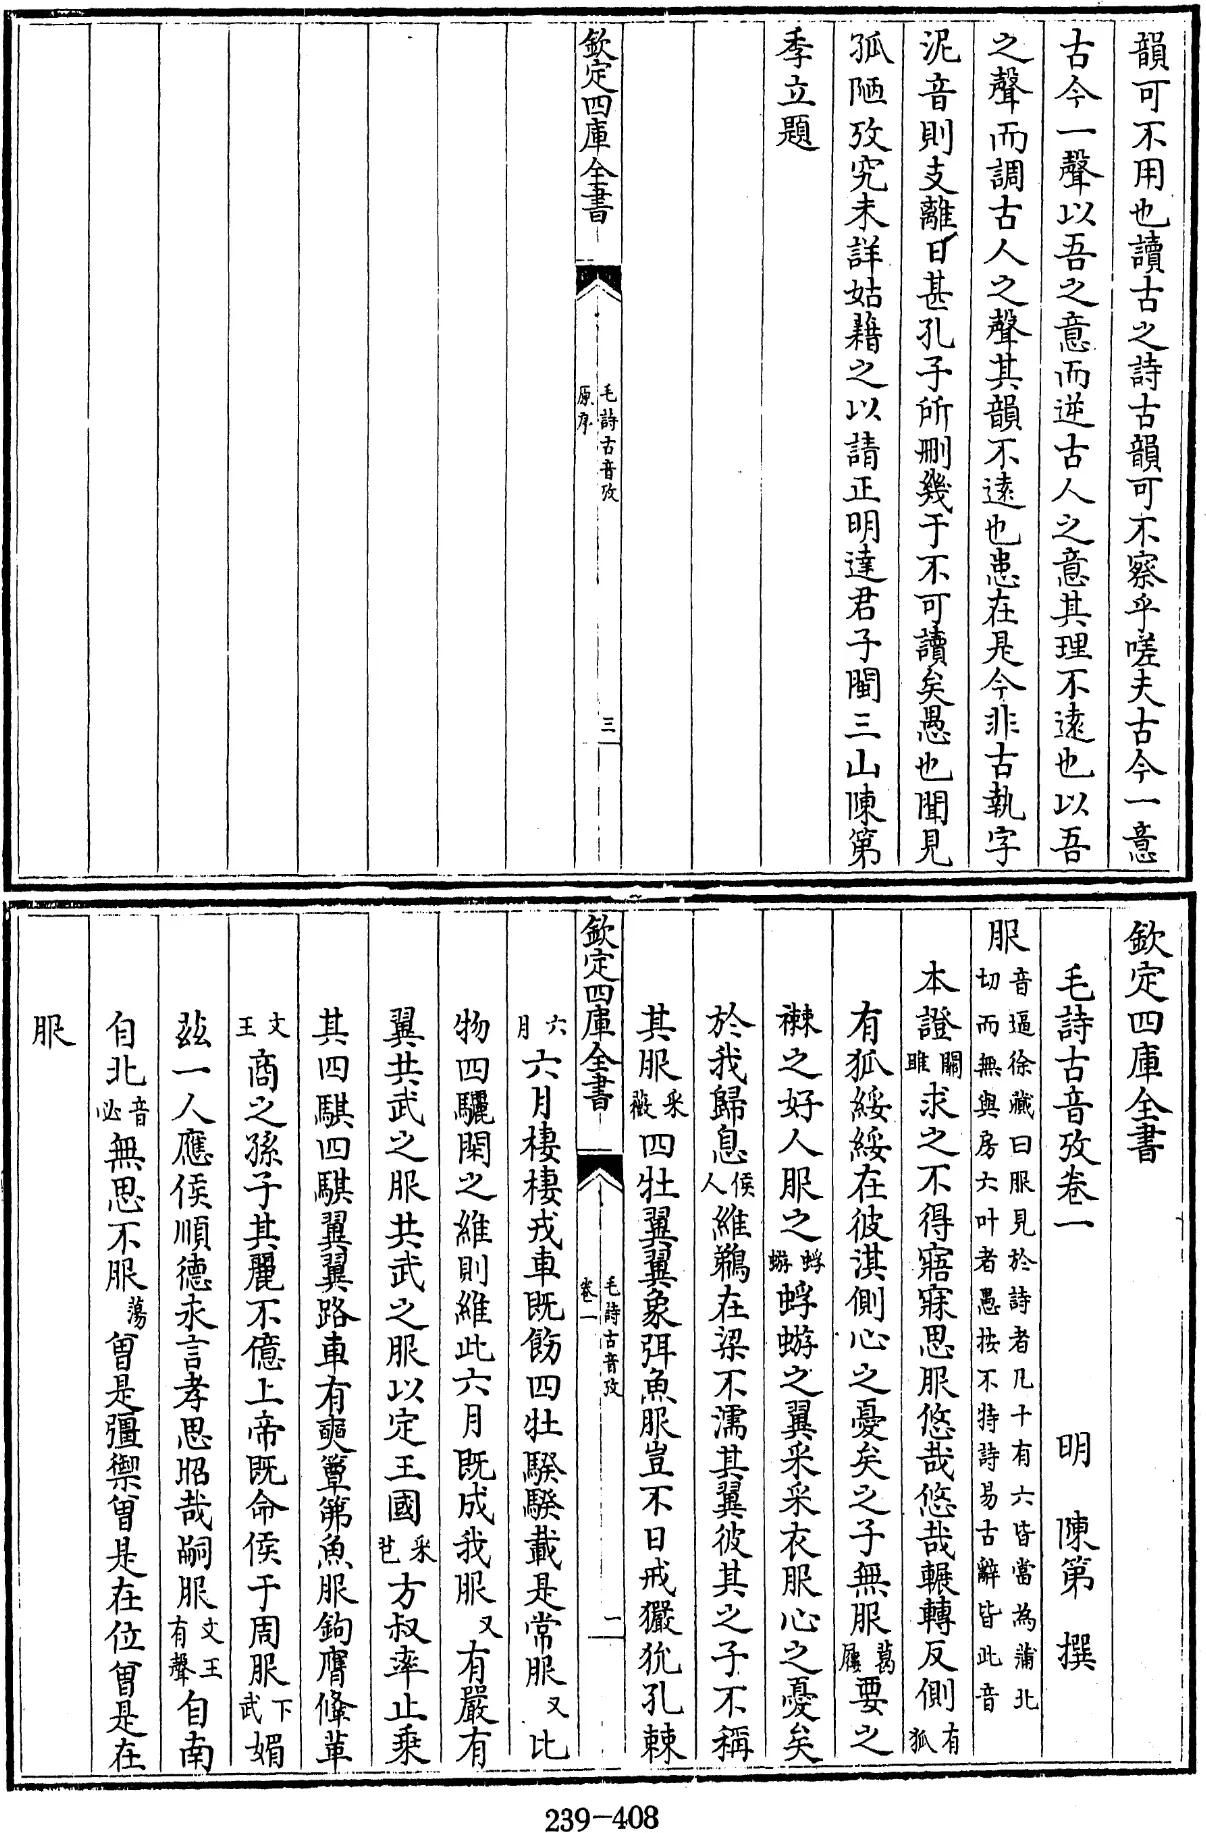 韻可不用也讀古之詩古韻可不察乎嗟夫古今一意
古今一聲以吾之意而逆古人之意其理不遠也以吾
之聲而調古人之聲其韻不遠也患在是今非古執字
泥音則支離日甚孔子所刪幾于不可讀矣愚也聞見
孤陋攷究未詳姑藉之以請正明達君子閩三山陳第
季立題
欽定四庫全書
毛詩古音攷
原序
三
欽定四庫全書
毛詩古音攷卷一
明 陳第 撰
服音逼徐藏曰服見於詩者凡十有六皆當為蒲北
切而無與房六叶者愚按不特詩易古辭皆此音
本證關雎求之不得寤寐思服悠哉悠哉輾轉反側有狐
有狐綏綏在彼淇側心之憂矣之子無服葛屨要之
襋之好人服之蜉蝣蜉蝣之翼采采衣服心之憂矣
於我歸息侯人維鵜在梁不濡其翼彼其之子不稱
其服采薇四牡翼翼象弭魚服豈不日戒玁狁孔棘
欽定四庫全書
毛詩古音攷
卷一
一
六月六月棲棲戎車既飭四牡騤騤載是常服又比
物四驪閑之維則維此六月既成我服又有嚴有
翼共武之服共武之服以定王國采芑方叔率止乘
其四騏四騏翼翼路車有奭簟茀魚服鉤膺鞗革
文王商之孫子其麗不億上帝既命侯于周服下武媚
玆一人應侯順德永言孝思昭哉嗣服文王有聲自南
自北音必無思不服蕩曾是彊禦曾是在位曾是在
服
239-408